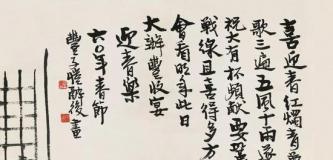 喜迎春红烛春
歌三遍五风十雨逐
祝大有杯频献要
战线且喜得多方
会看明年此日
大办丰收宴
迎春乐
六〇年春節
豐子愷醉後畫